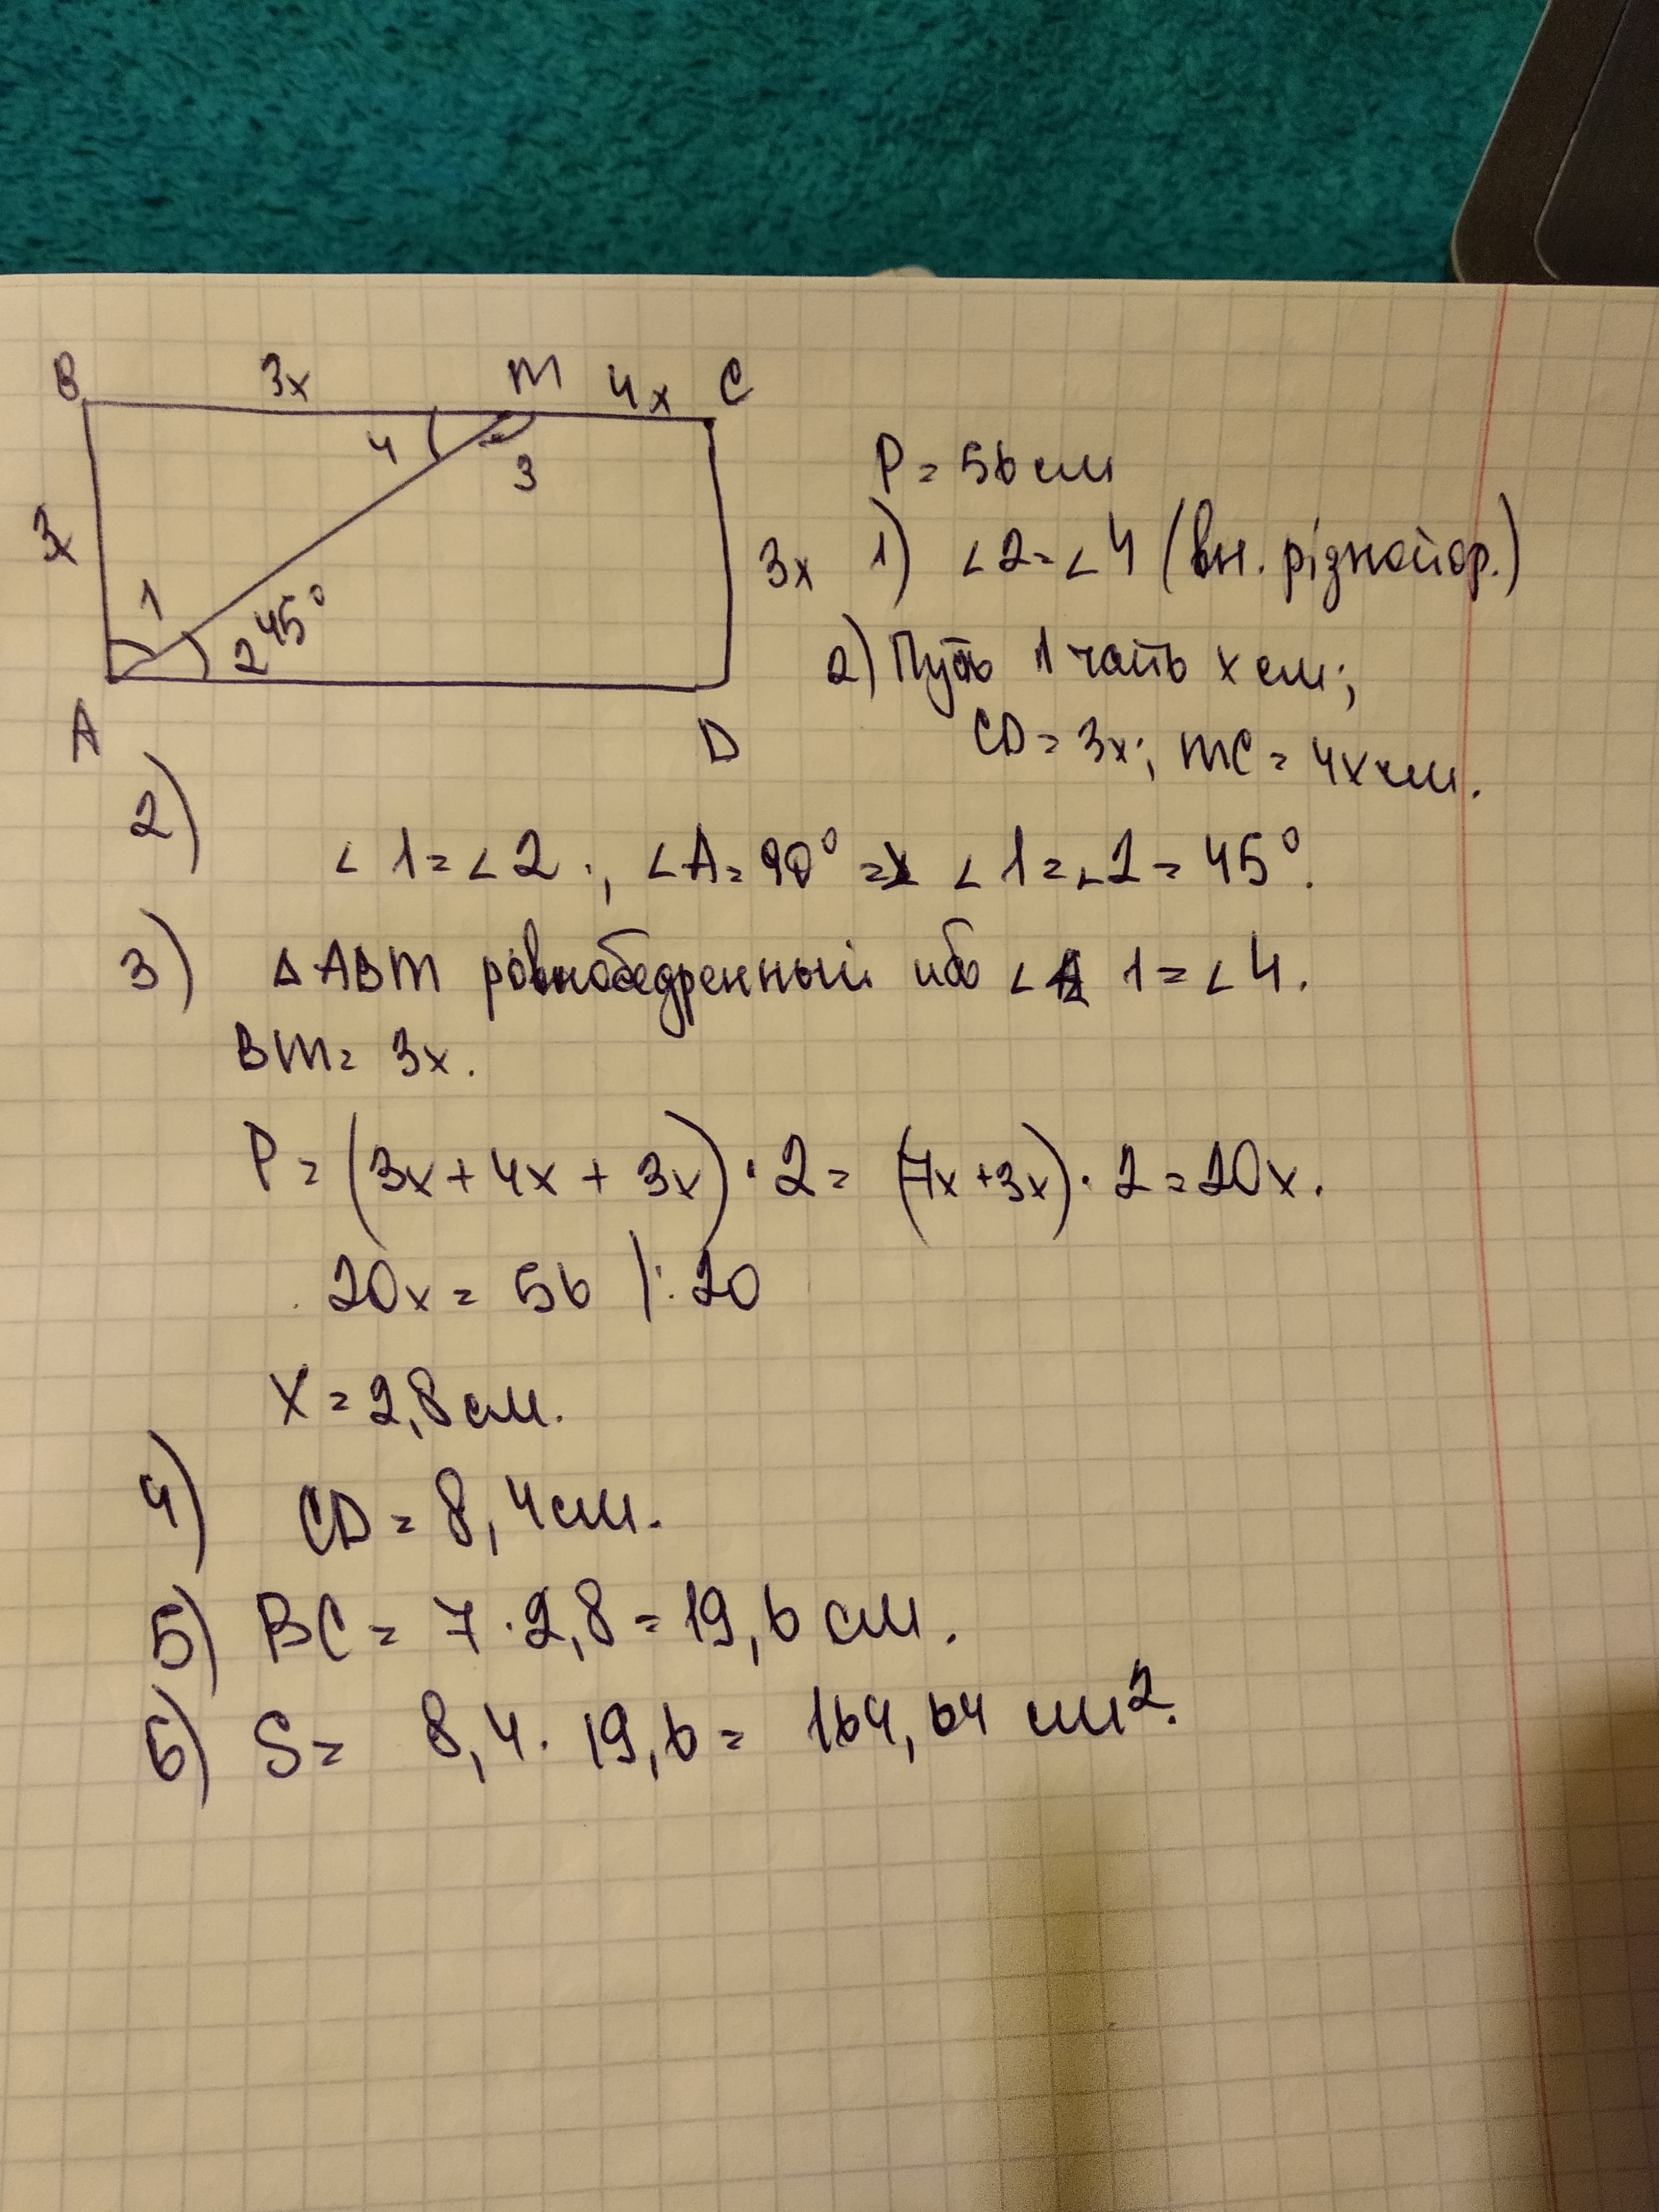 B 3x M 4x C
4
3
3x
1
2 45°
3x
A
D
P = 56 см
1) ∠2 = ∠4 (вн. різнойор.)
2) Пусть 1 часть x см;
CD = 3x; MC = 4x см.
2) ∠1 = ∠2; ∠A = 90° => ∠1 = ∠2 = 45°.
3) Δ ABM равнобедренный ибо ∠1 = ∠4.
BM = 3x.
P = (3x + 4x + 3x) · 2 = (7x + 3x) · 2 = 20x.
20x = 56 |: 20
X = 2,8 см.
4) CD = 8,4 см.
5) BC = 7 · 2,8 = 19,6 см.
6) S = 8,4 · 19,6 = 164,64 см².